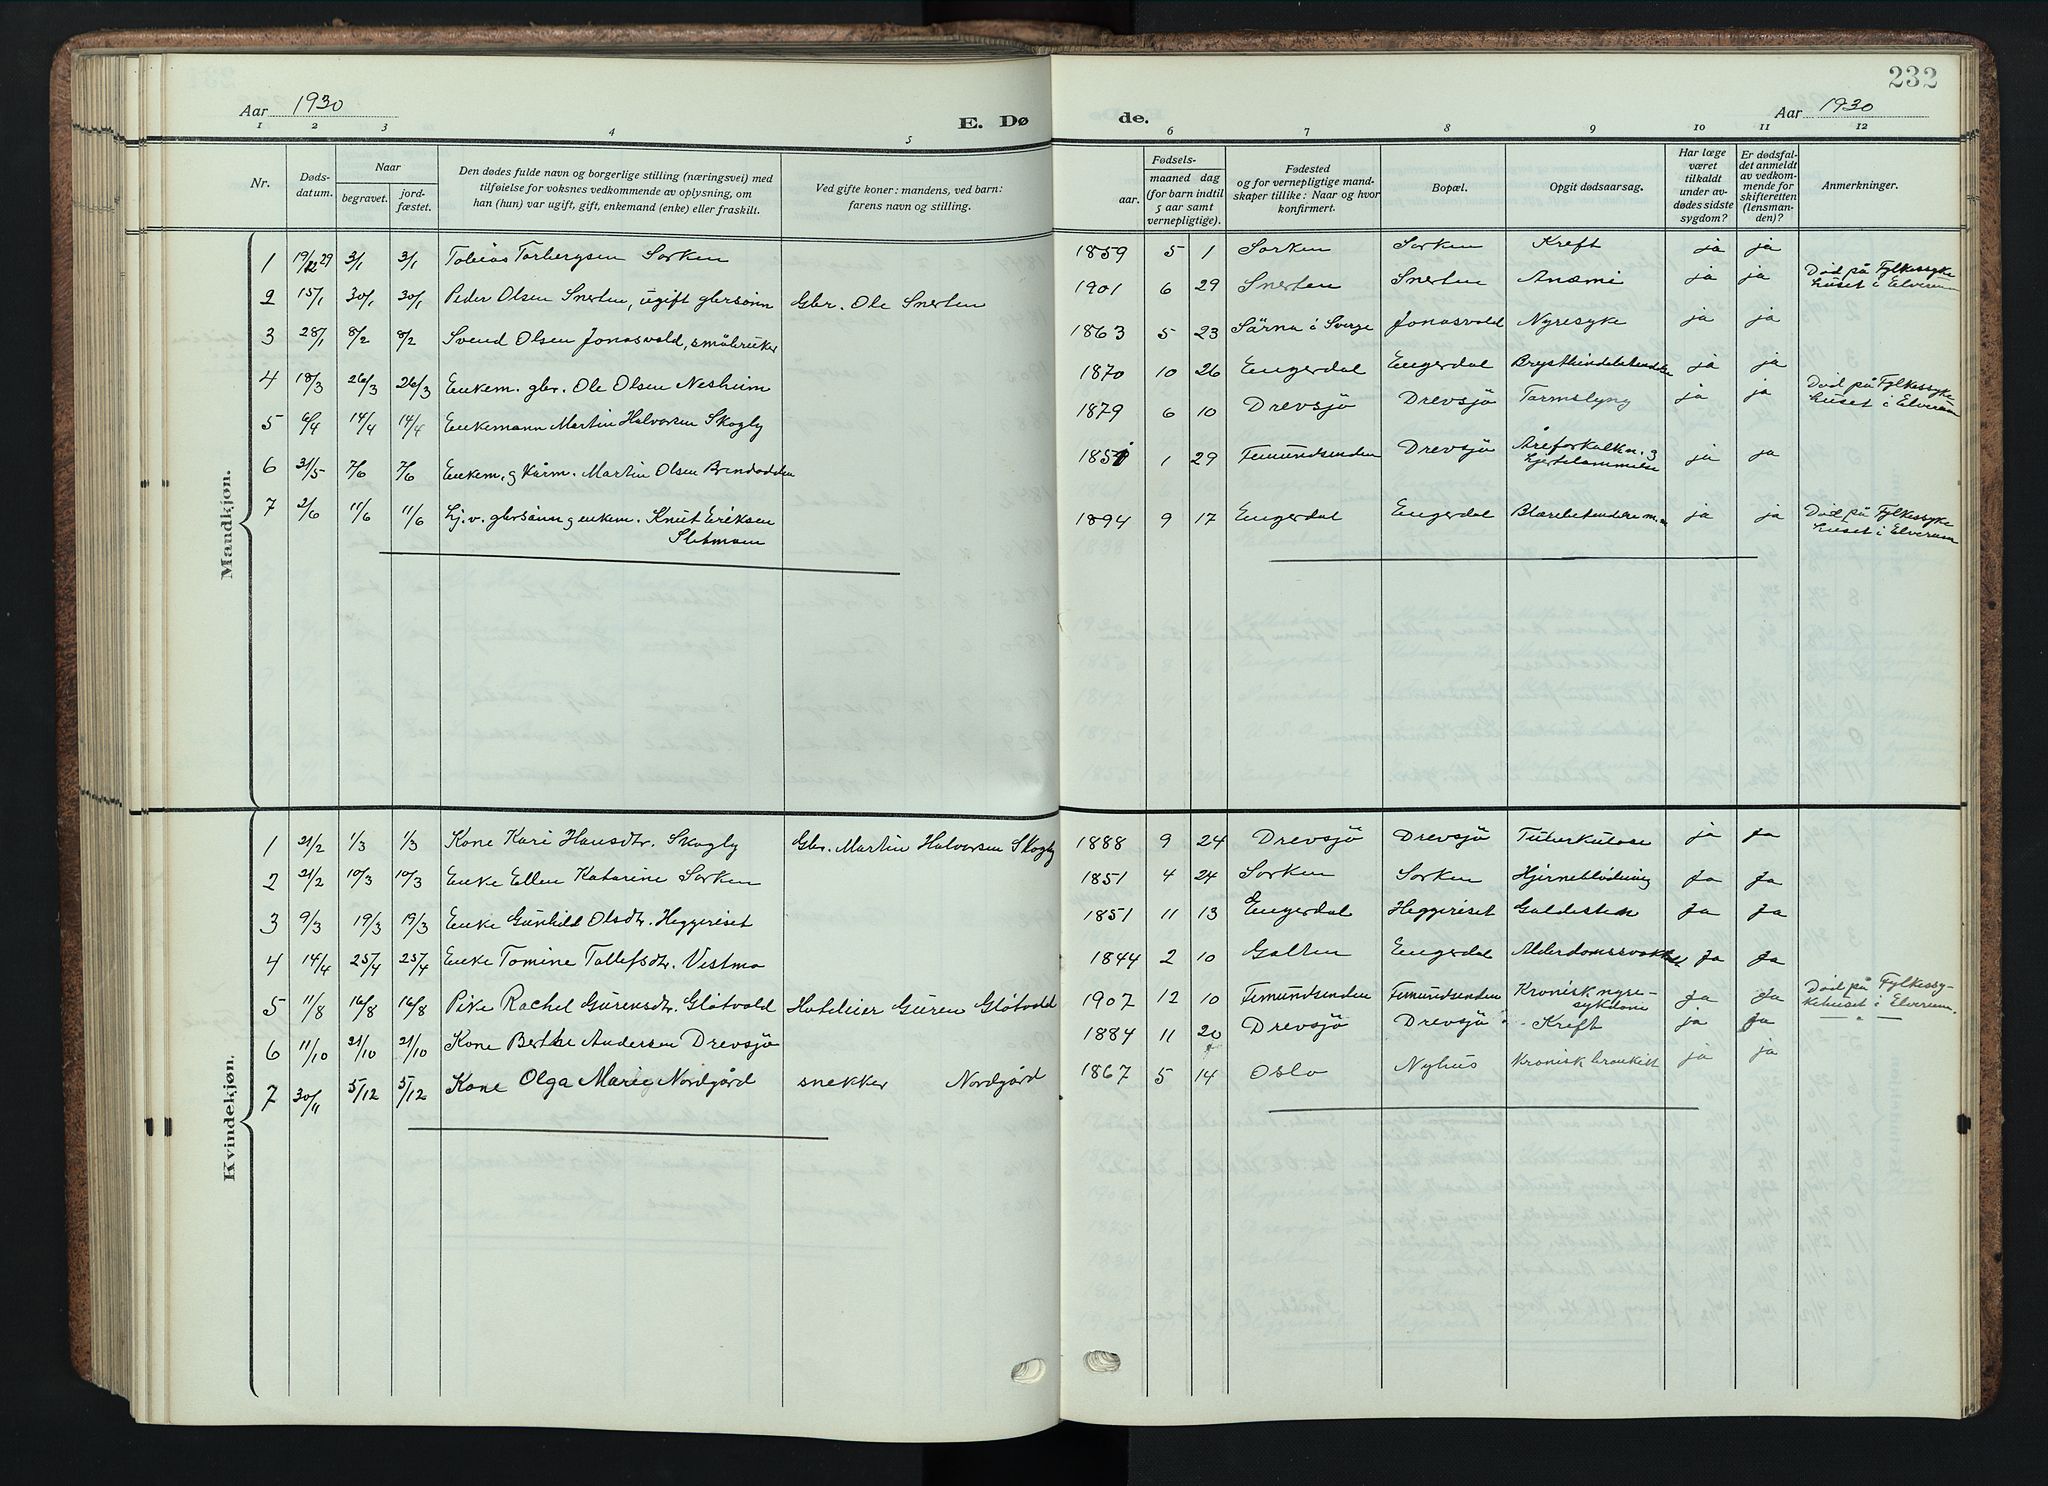 232
Aar 1930
E. Dø
de.
Aar 1930
1 2 3 4 5 6 7 8 9 10 11 12
Nr.
Døds-
datum.
Naar
begravet.
jord-
fæstet.
Den dødes fulde navn og borgerlige stilling (næringsvei) med
tilføielse for voksnes vedkommende av oplysning, om
han (hun) var ugift, gift, enkemand (enke) eller fraskilt.
Ved gifte koner: mandens, ved barn:
farens navn og stilling.
Fødsels-
aar.
maaned dag
(for barn indtil
5 aar samt
vernepligtige).
Fødested
og for vernepligtige mand-
skaper tillike: Naar og hvor
konfirmert.
Bopæl.
Opgit dødsaarsag.
Har læge
været
tilkaldt
under av-
dødes sidste
sygdom?
Er dødsfal-
det anmeldt
av vedkom-
mende for
skifteretten
(lensman-
den)?
Anmerkninger.
Mandkjøn.
1 19/12 29 3/1 3/1 Tobias Torbergsen Sorken 1859 5 1 Sorken Sorken Kreft ja ja
2 15/1 30/1 30/1 Peder Olsen Snerten, ugift gbrsønn Gbr. Ole Snerten 1901 6 29 Snerten Snerten Anæmi ja ja Död på Fylkessyke
huset i Elverum
3 28/1 8/2 8/2 Svend Olsen Jonasvold, småbruker 1863 5 23 Särna i Sverge Jonasvold Nyresyke ja ja
4 18/3 26/3 26/3 Enkem. gbr. Ole Olsen Neshum 1870 10 26 Engerdal Engerdal ja ja
5 6/4 14/4 14/4 Enkemann Martin Halvorsen Skogly 1879 6 10 Drevsjö Drevsjö Tarmslyng ja ja Död på Fylkessyke
huset i Elverum
6 31/5 7/6 7/6 Enkem. g kårm. Martin Olsen 1851 1 29 Femundsenden Drevsjö Åreforkalkn. g
hjertelammelse ja ja
7 2/6 11/6 11/6 Lj. v. gbrsönn g enkem. Knut Eriksen
Sletmoen 1894 9 17 Engerdal Engerdal ja ja Död på Fylkessyke
huset i Elverum
Kvindekjøn.
1 21/2 1/3 1/3 Kone Kari Hansdtr. Skogly Gbr. Martin Halvorsen Skogly 1888 9 24 Drevsjö Drevsjö Tuberkulose ja Ja
2 21/2 10/3 10/3 Enke Ellen Katarine Sorken 1851 4 24 Sorken Sorken Hjerneblödning Ja Ja
3 9/3 19/3 19/3 Enke Gunhild Olsdtr. Heggeriset 1851 11 13 Engerdal Heggeriset Galdesten Ja Ja
4 14/4 25/4 25/4 Enke Tomine Tollefsdtr. Vestmo 1844 2 10 Galten Engerdal Alderdomssvakhet Ja Ja
5 11/8 16/8 16/8 Pike Rachel Gurensdtr. Glötvold Hoteleier Guren Glötvold 1907 12 10 Femundsenden Femundsenden Kronisk nyre-
sykdom Ja Ja Död på Fylkessy-
kehuset i Elverum.
6 11/10 21/10 21/10 Kone Berthe Andersen Drevsjö 1884 11 20 Drevsjö Drevsjö Kreft ja Ja — " —
7 30/11 5/12 5/12 Kone Olga Marie Nordgård snekker Nordgård 1867 5 14 Oslo Nyhus Kronisk bronkitt ja ja